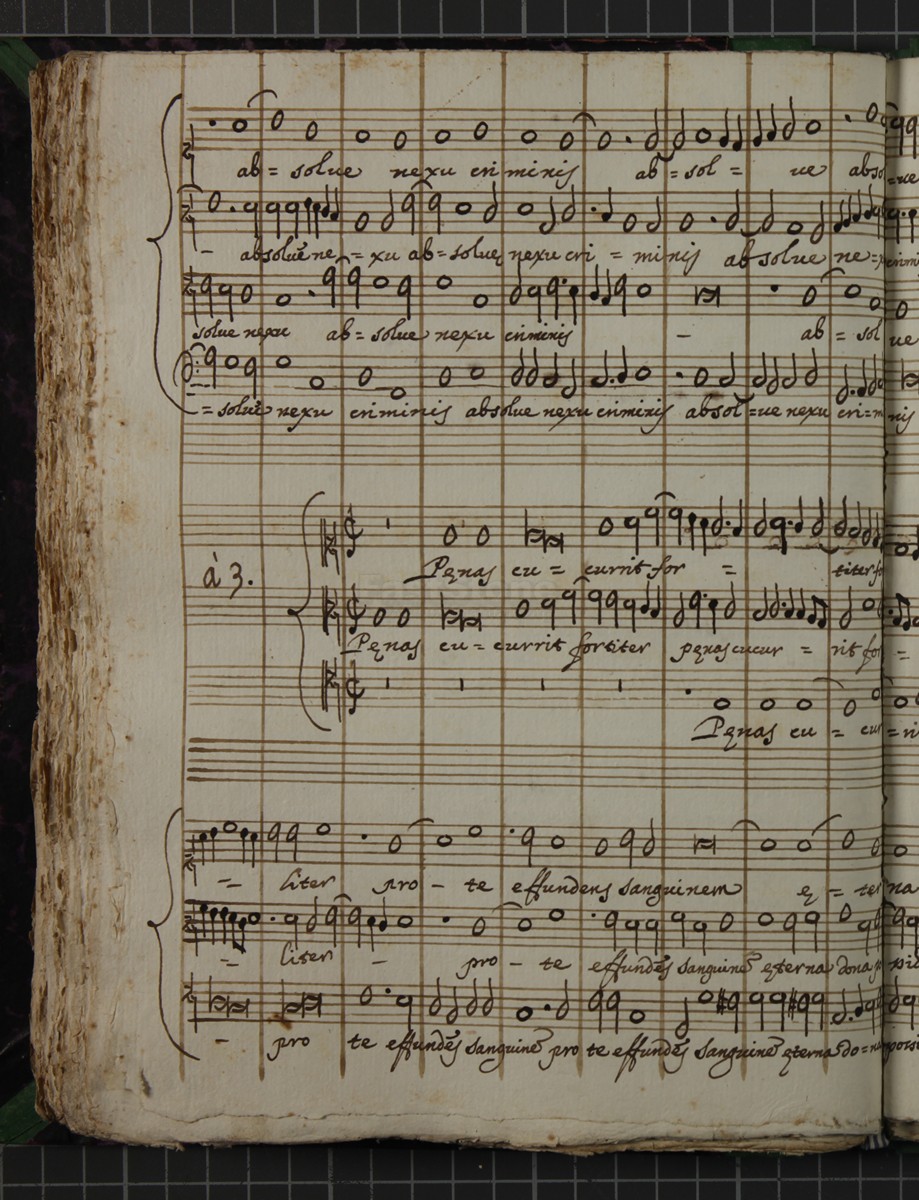 ab = solue nexu criminis ab = sol = ue abso = ue
- absolue ne = xu ab = solue nexu cri = minis absolue ne = xu crimi
solue nexu ab = solue nexu criminis - ab = sol ue
= solue nexu criminis absolue nexu criminis absol = ue nexu cri = mi nis
à 3.
Pęnas cu = currit for = titer fo
Pęnas cu = currit fortiter pęnas cucur = rit for =
Pęnas cu = cur = ri
= liter pro - te effundens sanguinem ę = ter na
= liter - pro - te effundēs sanguinē ęterna dona
- pro te effundēs sanguinē pro te effundēs sanguinē ęterna do = na